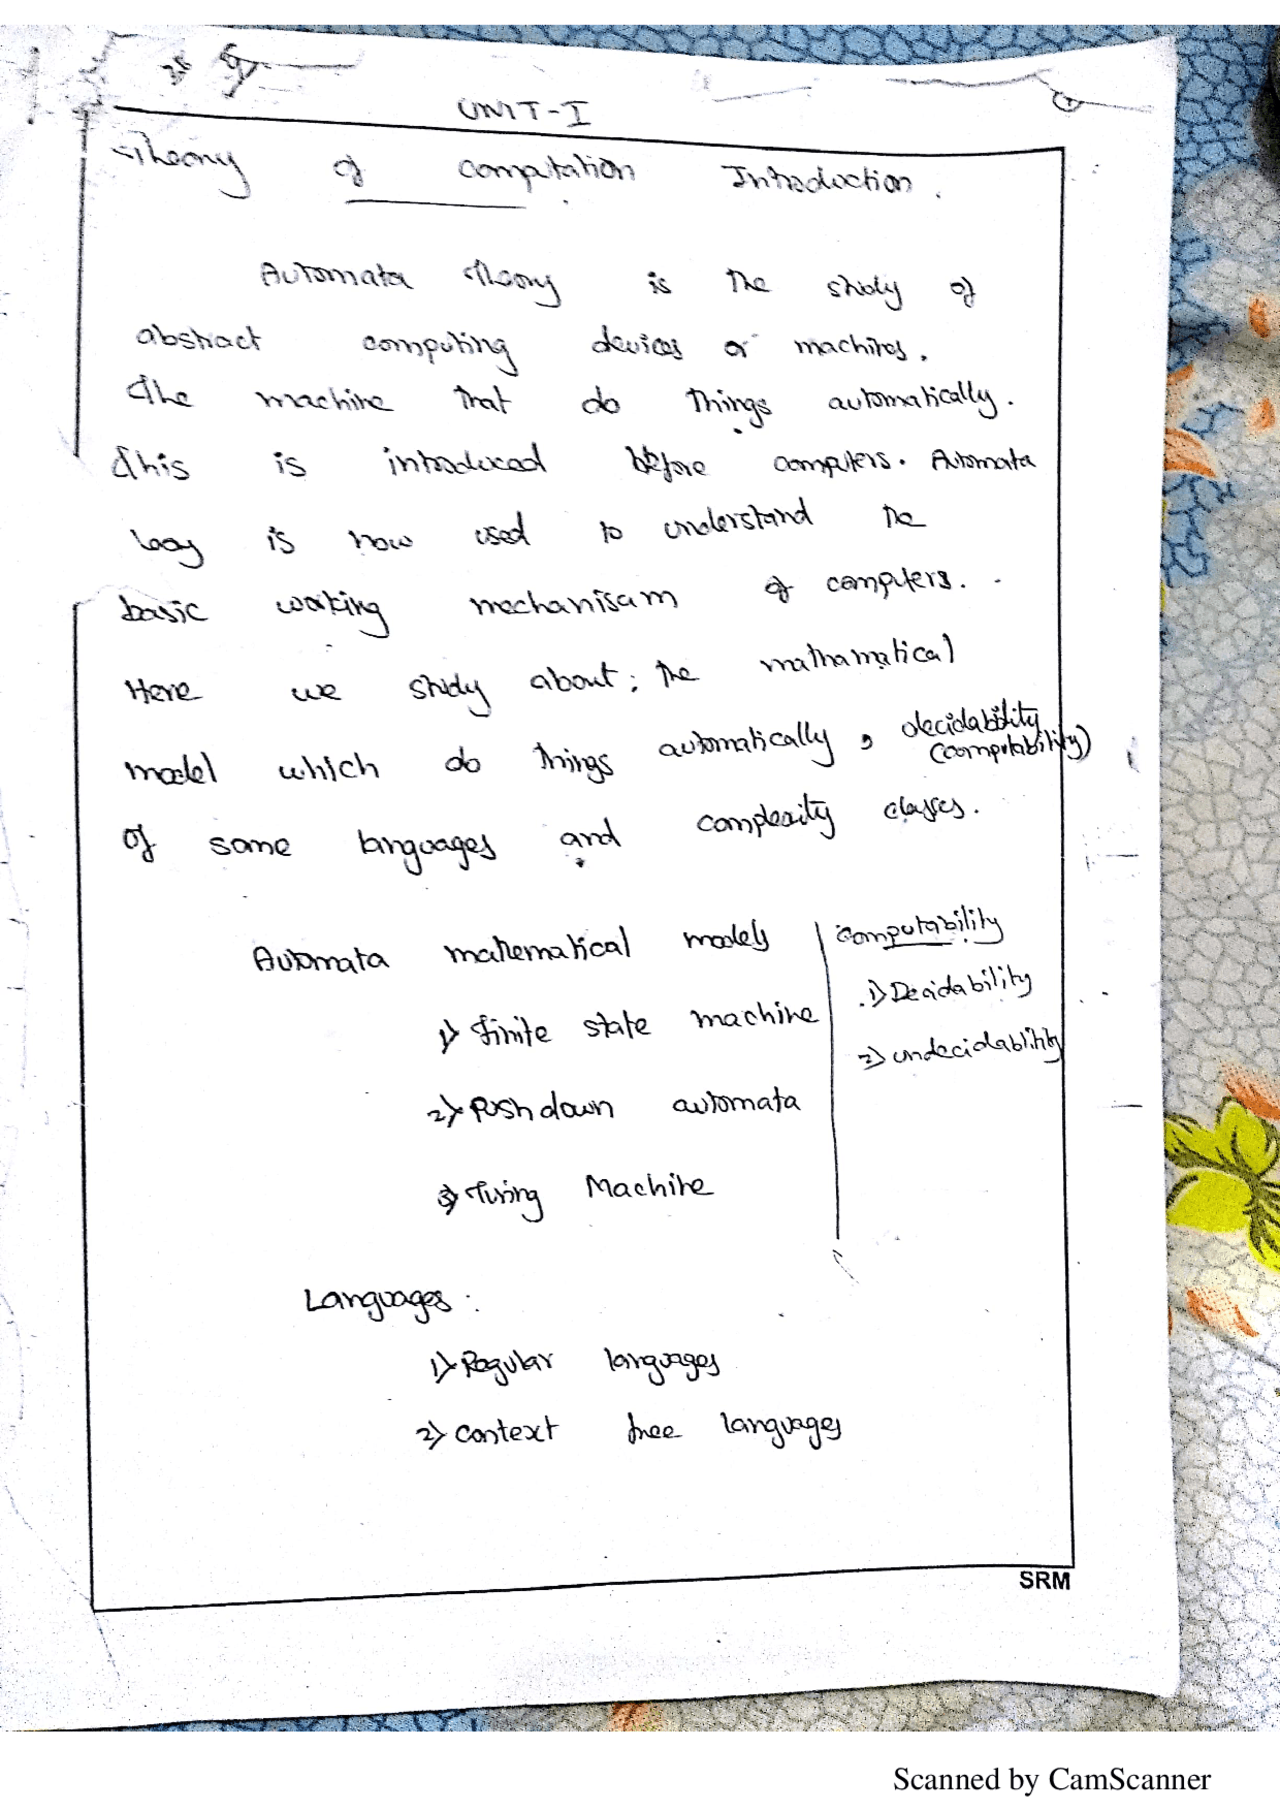 UNIT-I
Theory of computation Introduction.
Automata theory is the study of
abstract computing devices or machines.
The machine that do things automatically.
This is introduced before computers. Automata
is now used to understand the
basic working mechanisam of computers.
Here we study about; the mathamatical
model which do things automatically, decidability
(computability)
of some languages and complexity classes.
Automata mathematical models
1) finite state machine
2) Push down automata
3) Turing Machine
computability
1) Decidability
2) undecidablitity
Languages:
1) Regular languages
2) context free languages
SRM
Scanned by CamScanner